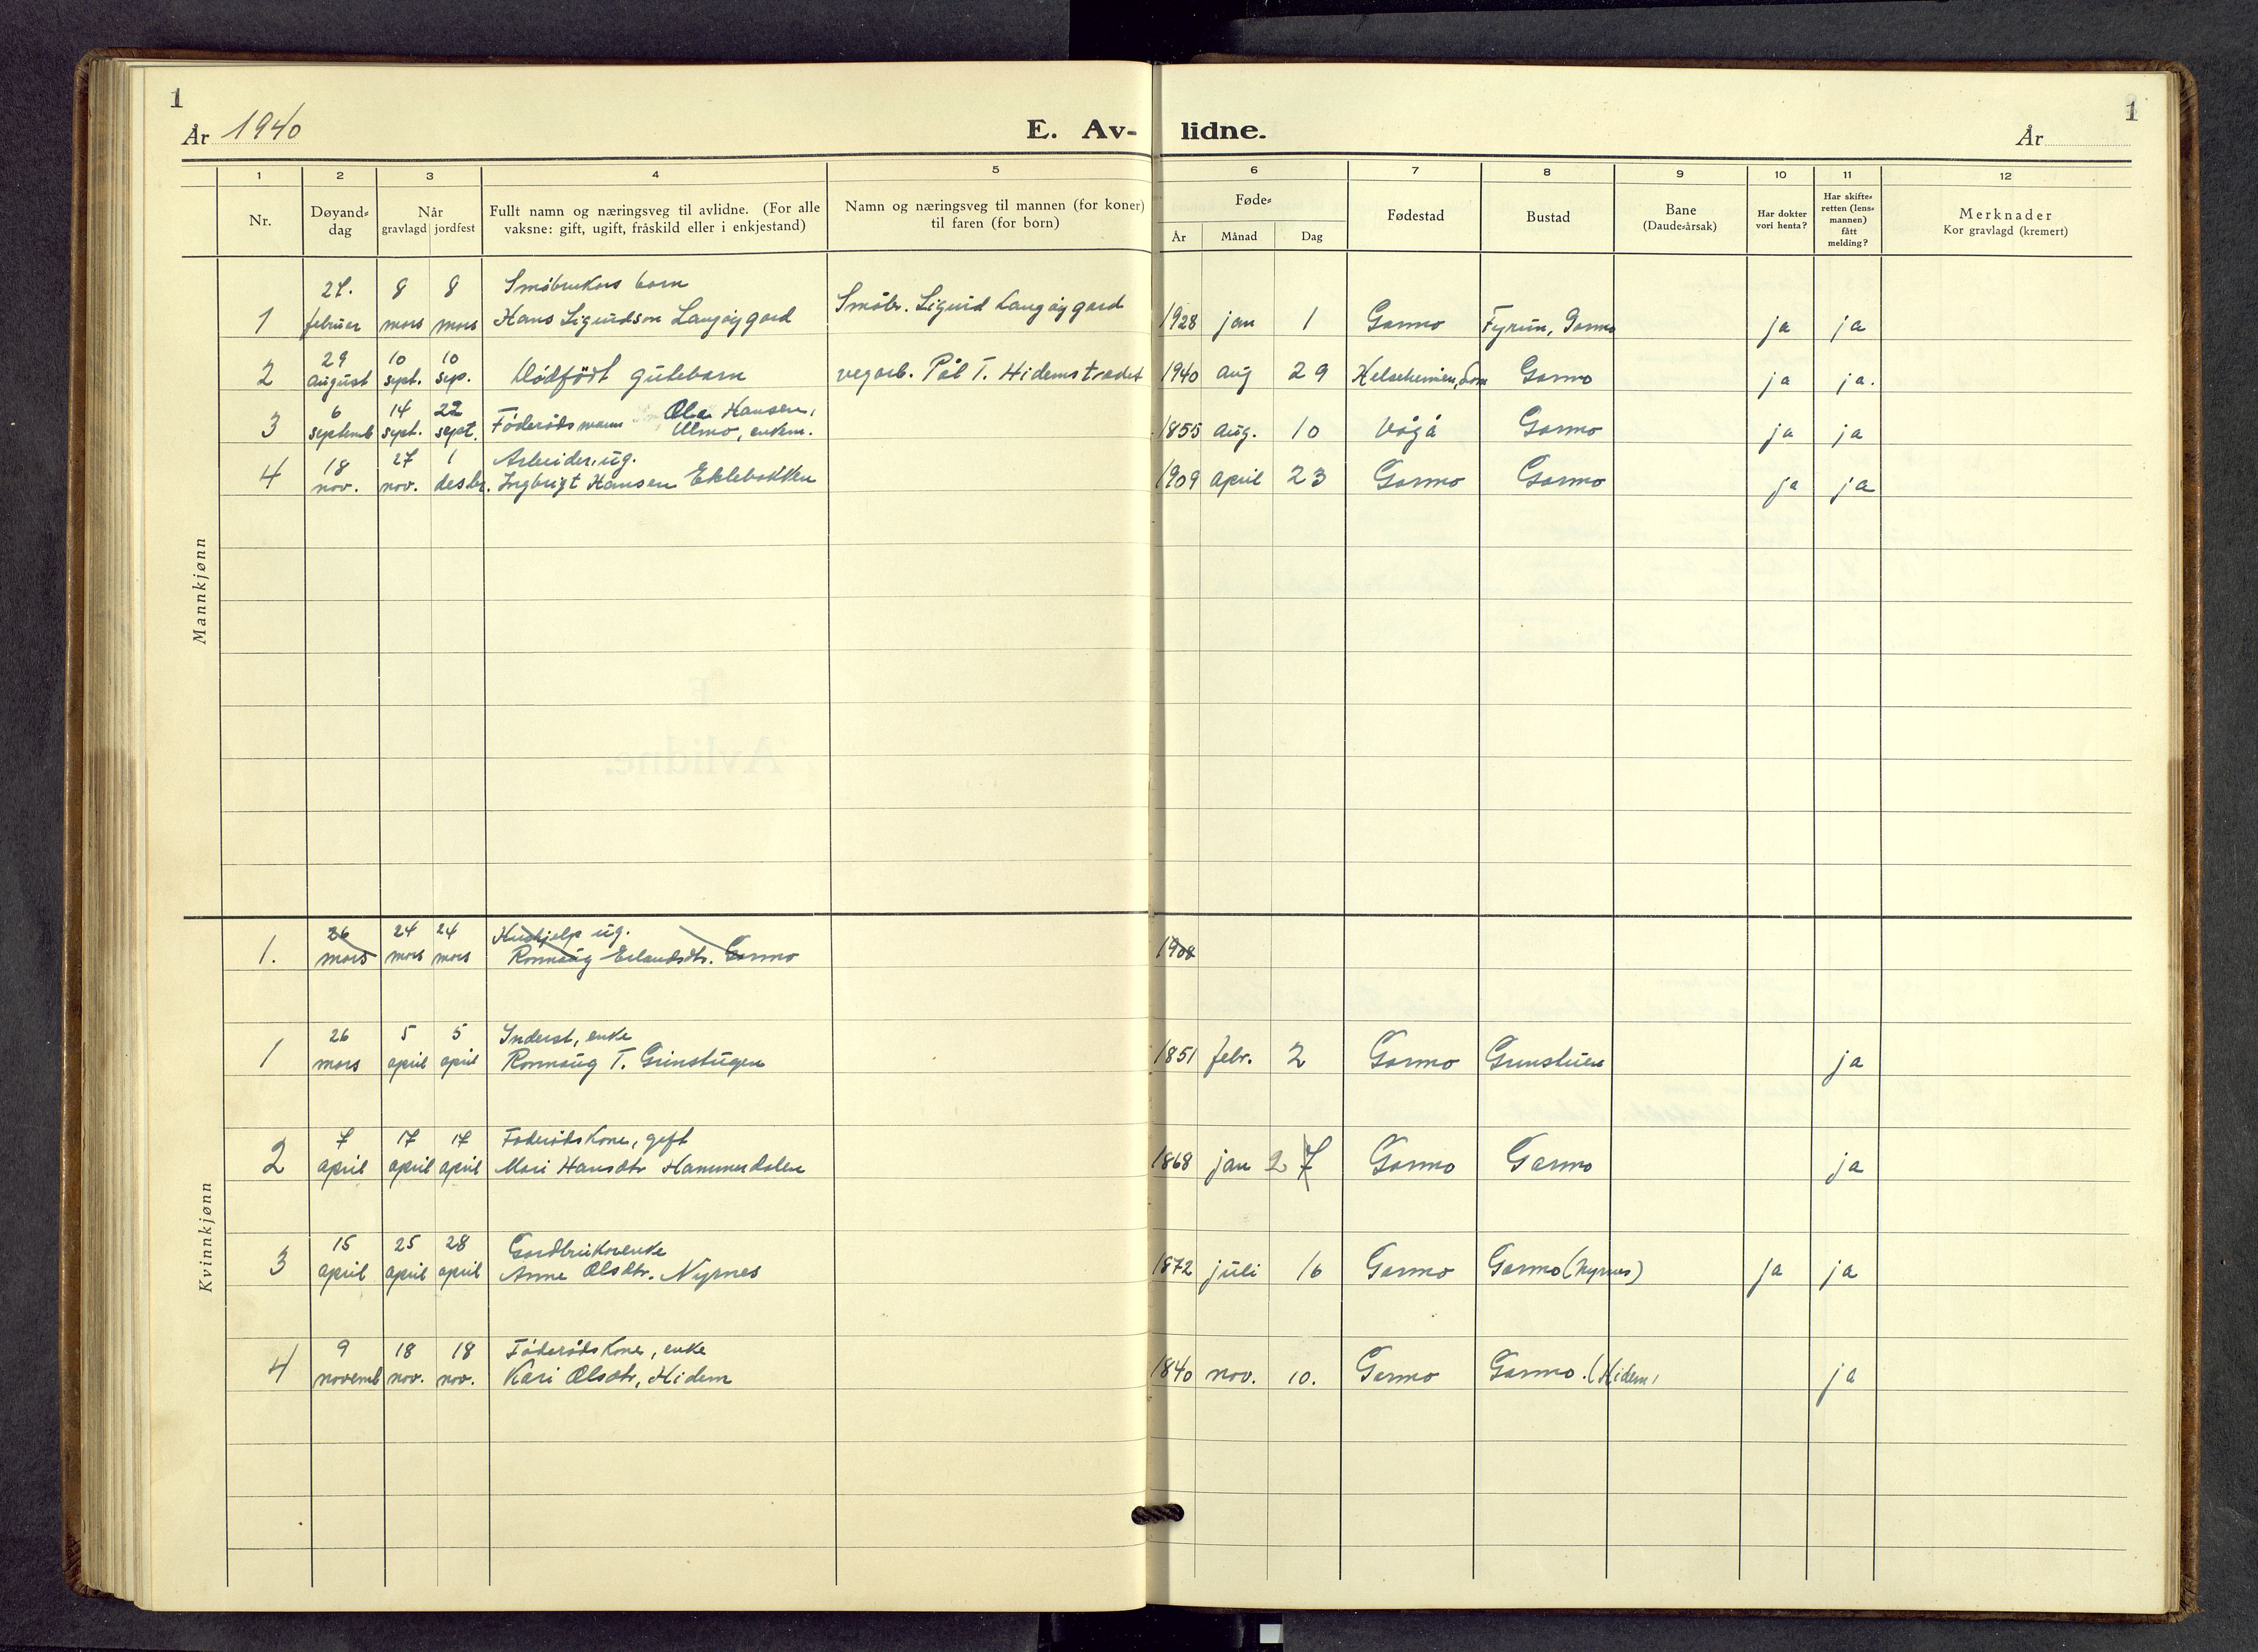 1
År 1940
E. Av-
lidne.
År
1
1 2 3 4 5 6 7 8 9 10 11 12
Nr.
Døyand-
dag
Når
gravlagd jordfest
Fullt namn og næringsveg til avlidne. (For alle
vaksne: gift, ugift, fråskild eller i enkjestand)
Namn og næringsveg til mannen (for koner)
til faren (for born)
Føde-
År Månad Dag
Fødestad
Bustad
Bane
(Daude-årsak)
Har dokter
vori henta?
Har skifte-
retten (lens-
mannen)
fått
melding?
Merknader
Kor gravlagd (kremert)
Mannkjønn
27. 8 8 Småbrukars barn Småbr. Sigurd Langøygard
1 februar mars mars Hans Sigurdson Langøygard 1928 jan 1 Garmo Fyrun, Garmo ja ja
29 10 10
2 august sept. sep. Dødfödt gutebarn vegarb. Pål T. Hidemstrædet 1940 aug 29 Helseheimen, Lom Garmo ja ja.
6 14 22 Ola Hansen,
3 septemb sept. sept. Föderådsmann Ulmo, enkem. 1855 aug. 10 Vågå Garmo ja ja
18 27 1 Arbeider, ug.
4 nov. nov. desbr. Ingbrigt Hansen Eklebakken 1909 april 23 Garmo Garmo ja ja
Kvinnkjønn
26 24 24 Hushjelp ug.
1. mars mars mars Ronnaug Erlandsdtr. Garmo 1908
26 5 5 Inderst, enke
1 mars april april Ronnaug T. Grinstugen 1851 febr. 2 Garmo Grinstuen ja
7 17 17 Föderådskone, gift
2 april april april Mari Hansdtr Hammerdalen 1868 jan 27 Garmo Garmo ja
15 25 28 Gardbrukarenke
3 april april april Anne Olsdtr. Nyrnes 1872 juli 16 Garmo Garmo (Nyrnes) ja ja
9 18 18 Föderådskone, enke
4 novemb nov. nov. Kari Olsdtr, Hidem 1840 nov. 10. Garmo Garmo. (Hidem, ja